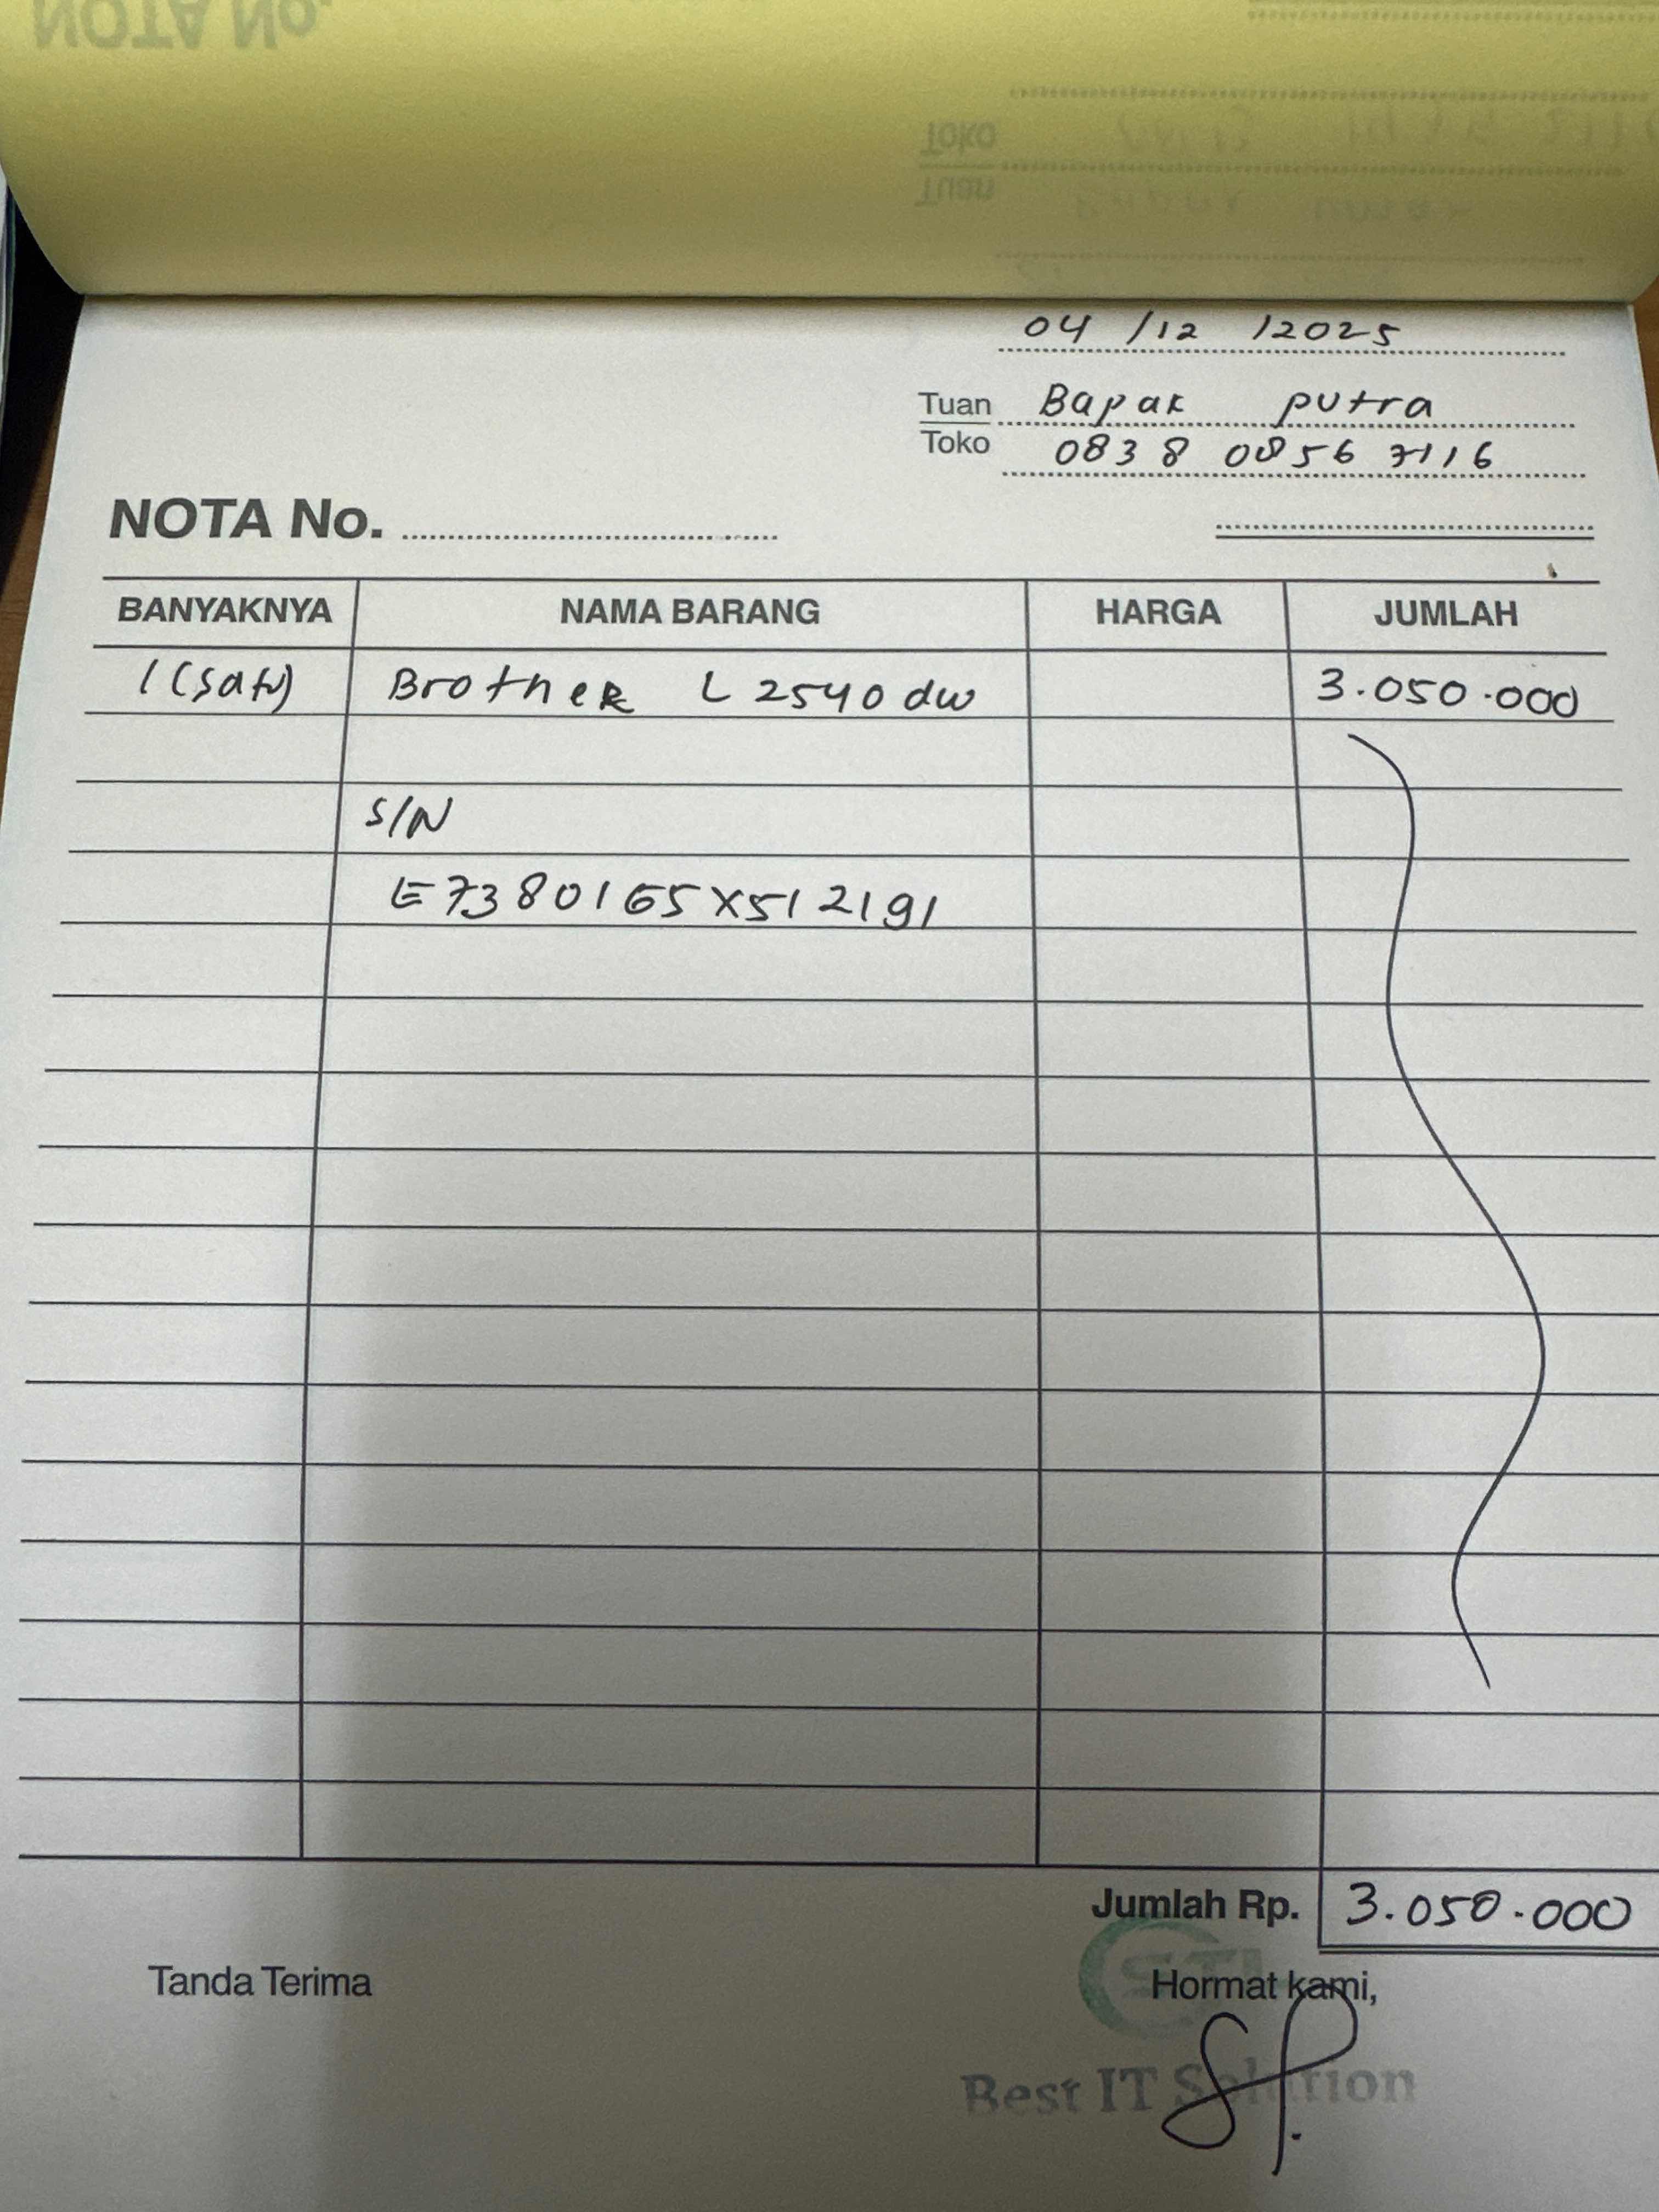 NOTA No.
Toko
Tuan
04 /12 /2025
Tuan Bapak putra
Toko 0838 0856 7116
NOTA No.
BANYAKNYA NAMA BARANG HARGA JUMLAH
1 (satu) Brother L 2540 dw 3.050.000
S/N
E7380165X512191
Jumlah Rp. 3.050.000
Tanda Terima Hormat kami,
STI
Best IT Solution